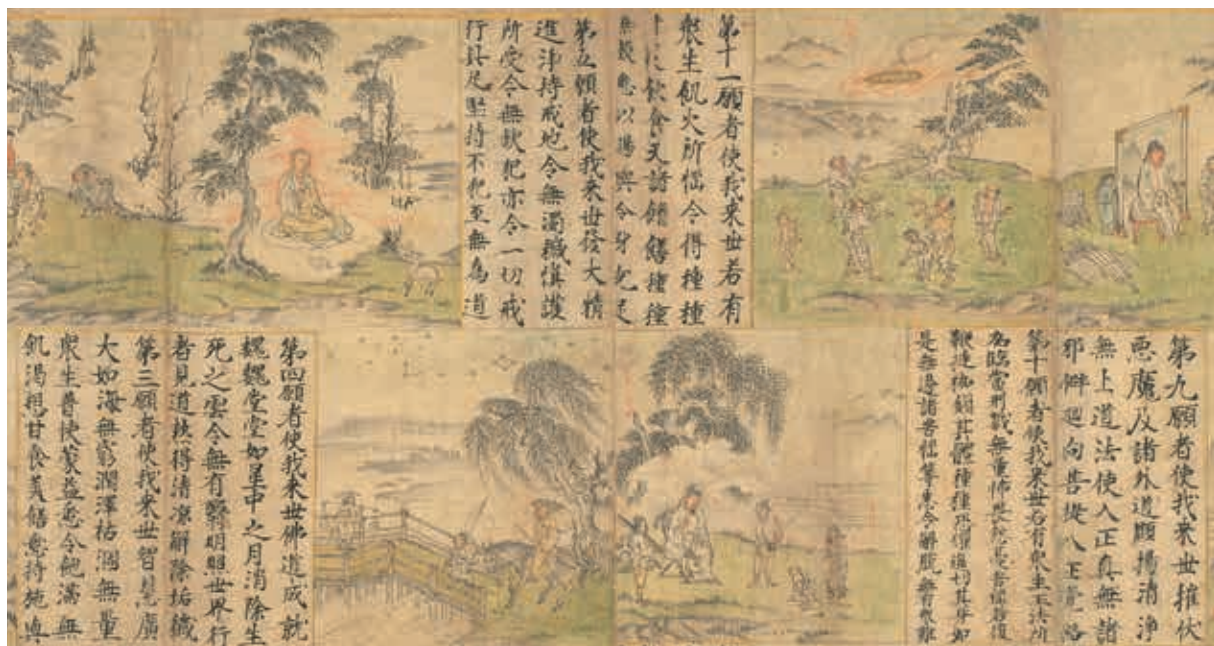 第十一願者使我來世若有
衆生飢火所惱令得種種
飲食天諸餚饍種種
無數悉以賜與令身充足
第五願者使我來世發大精
進淨持戒地令無濁穢慎護
所受令無缺犯亦令一切戒
行具足堅持不犯至無為道
第九願者使我來世摧伏
惡魔及諸外道顯揚清淨
無上道法使入正真無諸
邪僻迴向菩提八正覺路
第十願者使我來世若有衆生王法所
臨當刑戮無量怖畏愁憂苦惱若復
鞭撻枷鎖其體種種恐懼逼切其身如
是無邊諸苦惱等悉令解脫無有衆難
第四願者使我來世佛道成就
巍巍堂堂如星中之月消除生
死之雲令無有翳明照世界行
者見道熱得清涼解除垢穢
第三願者使我來世智慧廣
大如海無窮潤澤枯涸無量
衆生普使蒙益悉令飽滿無
飢渴想甘食美饍悉持施與